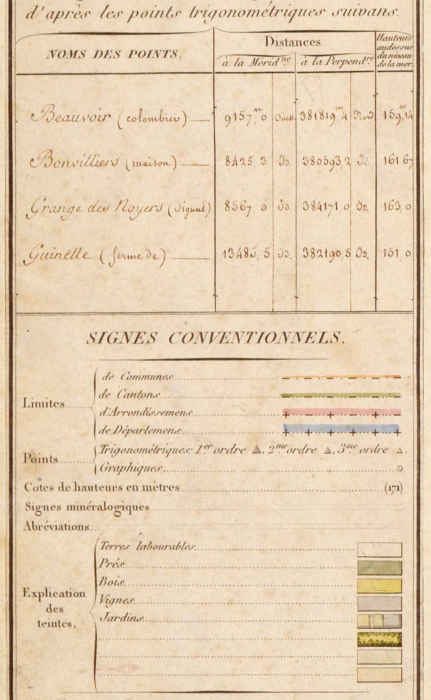 d'après les points trigonométriques suivans.
NOMS DES POINTS.
Distances
à la Mérid.ne
à la Perpend.re
Hauteurs
au dessus
du niveau
de la mer.
Beauvoir (colombier) 9157,m0 Ouest 381819,m4 Nord 159,14
Bonvilliers (maison) 8425 3 Id. 380593,2 Id. 161 67
Grange des Noyers (signal) 8567 6 Id. 384171 0 Id. 163 0
Guinette (ferme de) 13485, 5 Id. 382190 5 Id. 151 0
SIGNES CONVENTIONNELS.
Limites
de Communes
de Cantons
d'Arrondissemens
de Départemens
Points
Trigonométriques 1er ordre ▲, 2me ordre ▲, 3me ordre ▲.
Graphiques
Cotes de hauteurs en mètres (171)
Signes minéralogiques
Abréviations
Explication
des
teintes,
Terres labourables
Prés
Bois
Vignes
Jardins